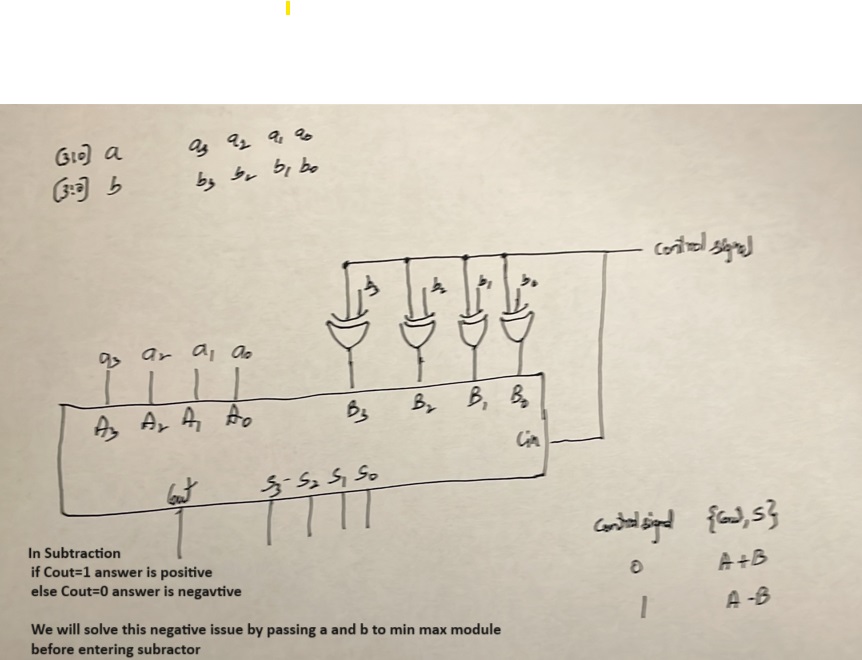 [3:0] a a3 a2 a1 a0
[3:0] b b3 b2 b1 b0
control signal
b3 b2 b1 b0
a3 a2 a1 a0
A3 A2 A1 A0 B3 B2 B1 B0
Cin
Cout S3 S2 S1 S0
Control signal {Cout, S}
0 A+B
1 A-B
In Subtraction
if Cout=1 answer is positive
else Cout=0 answer is negavtive
We will solve this negative issue by passing a and b to min max module
before entering subractor